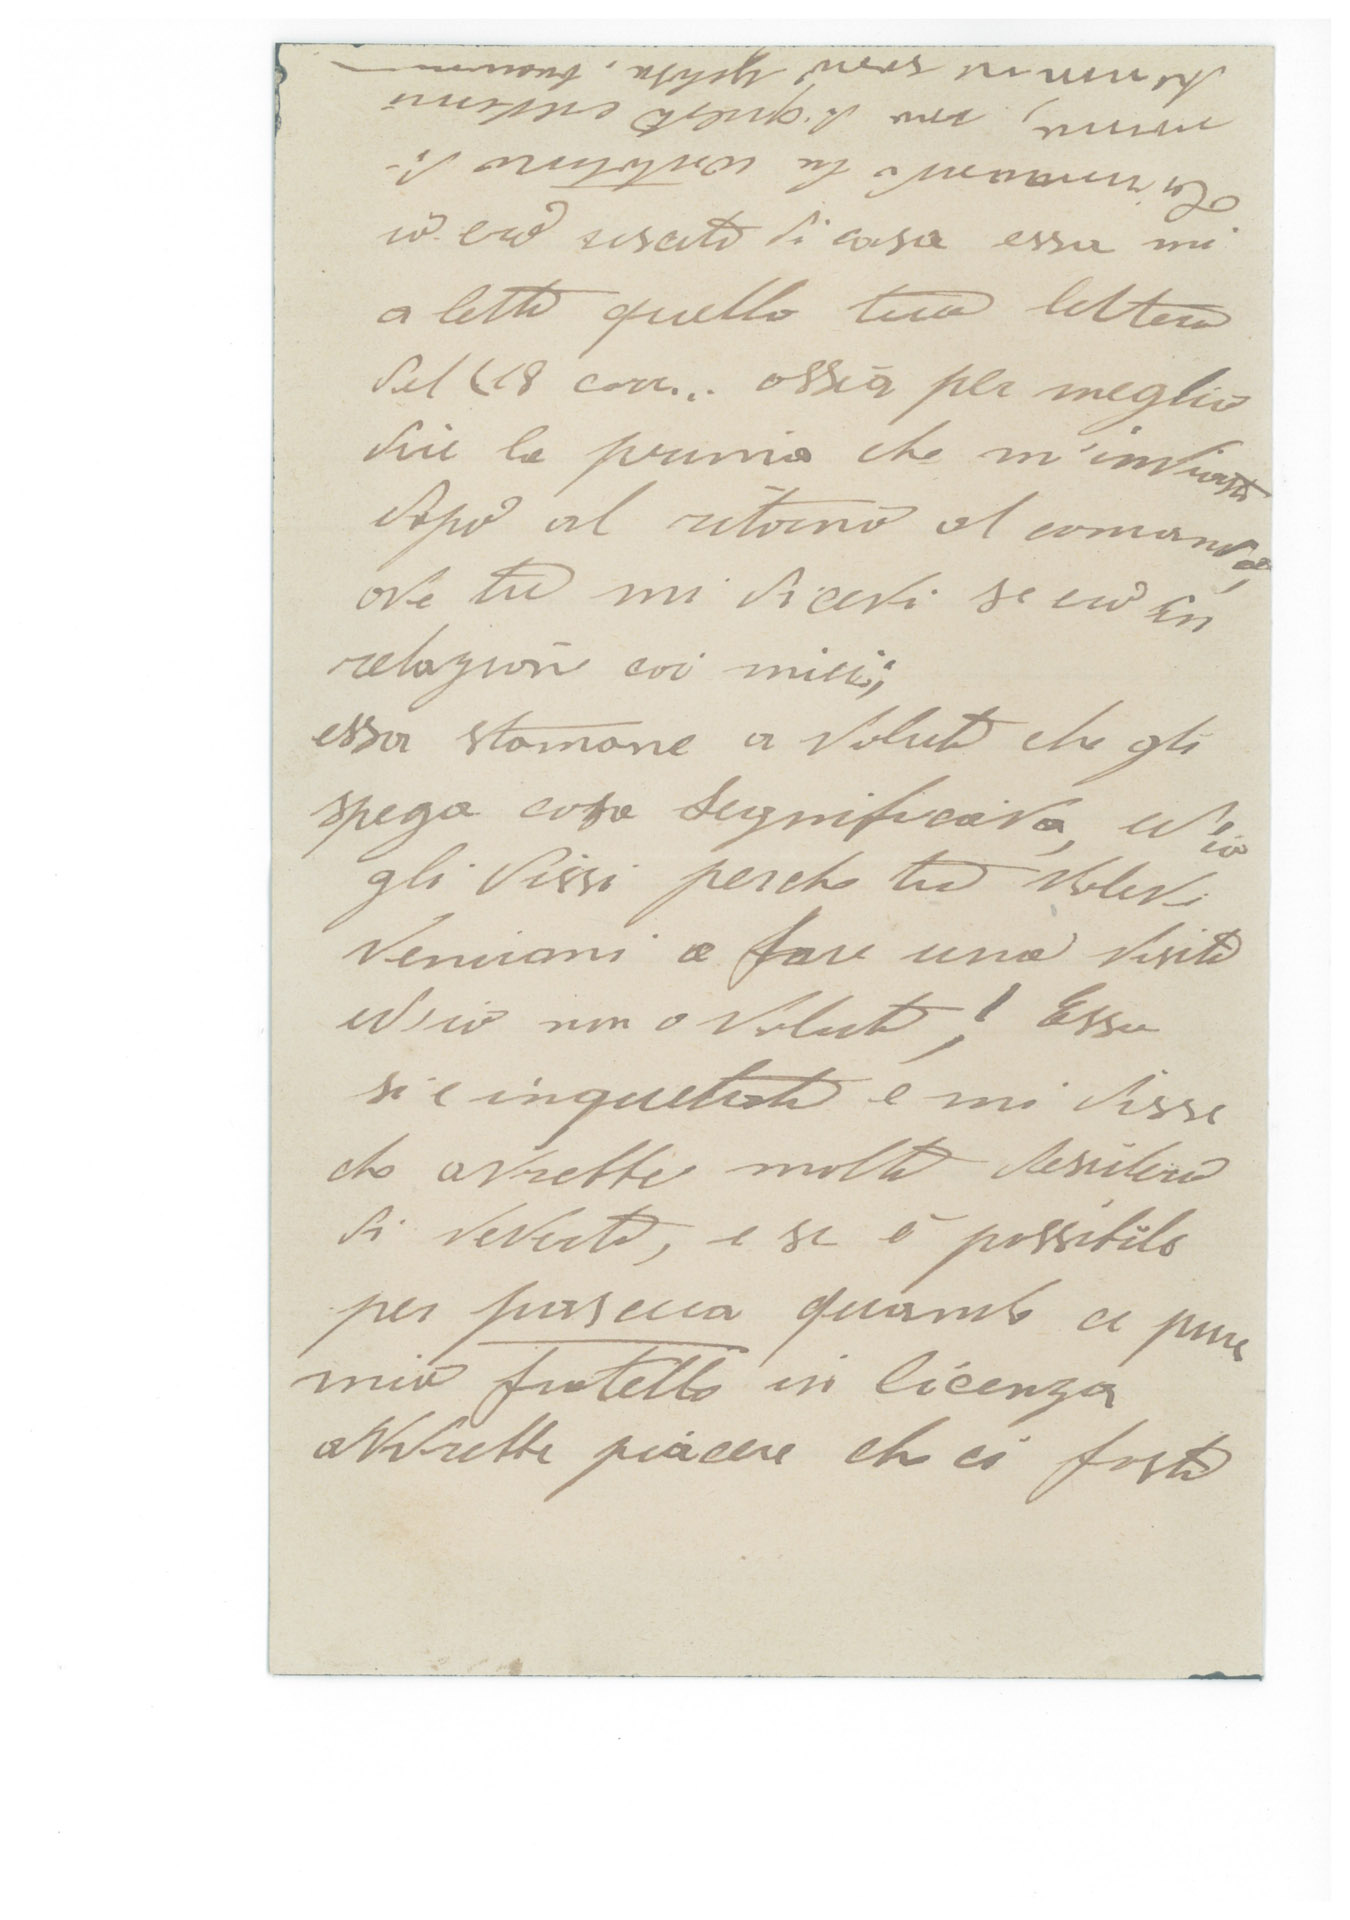 io ero uscito di casa essa mi
a letto quella tua lettera
del 18 corr... ossia per meglio
dire la prima che m'inviasti
dopo al ritorno al comando,
ove tu mi dicevi se ero in
relazione coi miei;
essa stamane a voluto che gli
spega cosa segnificava, ed io
gli dissi perche tu volevi
venirmi a fare una visita
ed io non o voluto,! Essa
si e inquetata e mi disse
che avrebbe molto desiderio
di vederti, e se è possibile
per pasqua quando ce pure
mio fratello in licenza
avvrebbe piacere che ci fosti
Certamente la cartolina di
mama, ma di questo